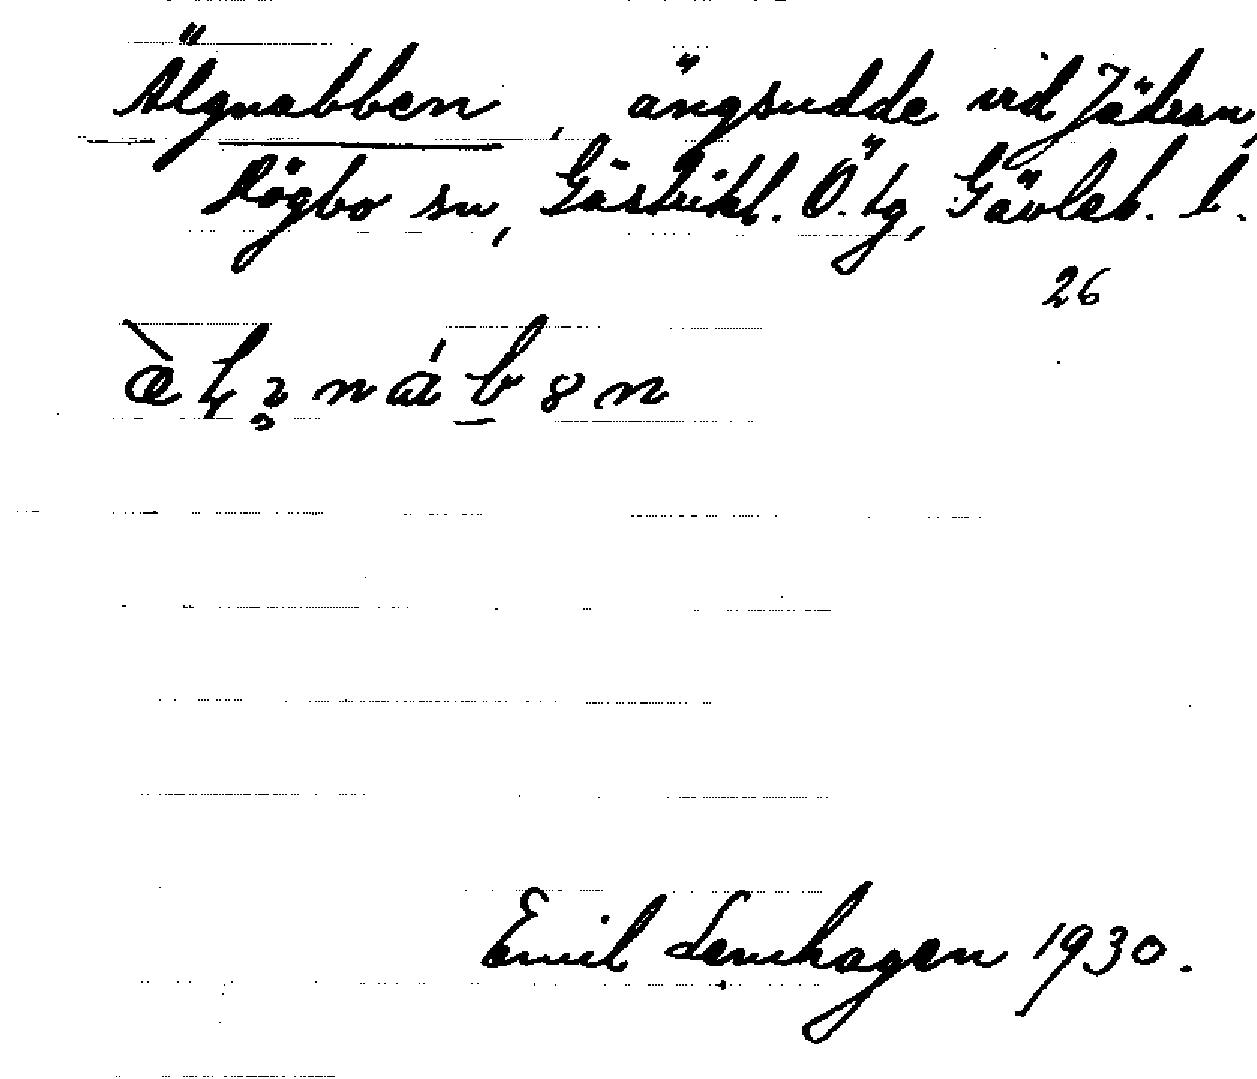 Älgnabben, ängsudde vid Jädran,
Högbo sn, Gästrikl. Ö. tg, Gävleb. l.
26
Emil Lemhagen 1930.